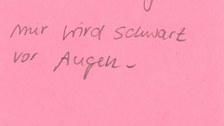 mir wird schwarz
vor Augen -